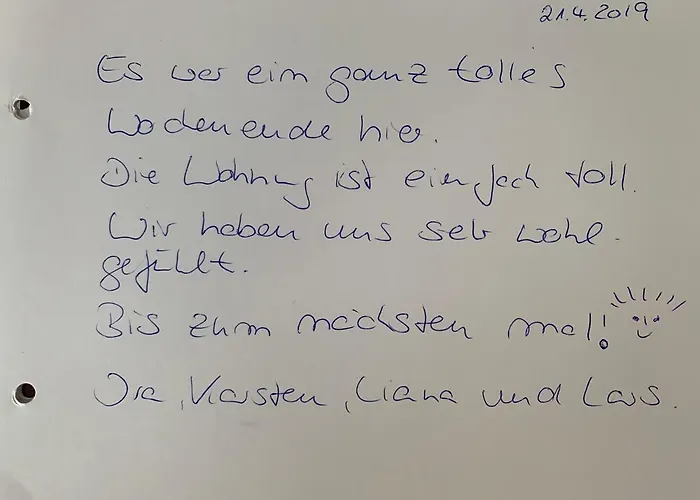 21.4.2019
Es war ein ganz tolles
Wochenende hier.
Die Wohnung ist einfach toll.
Wir haben uns sehr wohl-
gefühlt.
Bis zum nächsten mal!
Karsten, Liana und Lars.